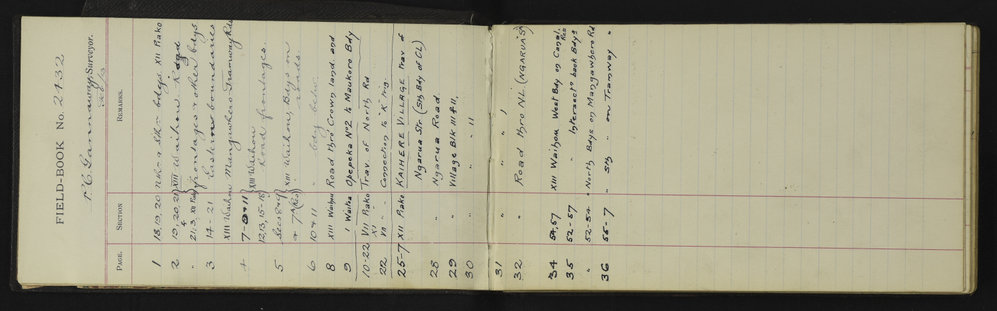 FIELD-BOOK No. 2432
Surveyor.
PAGE. SECTION REMARKS.
1 18, 19, 20 Nth & Sth bdys. XII Piako
2 19, 20, 21 XIII Waihou.
" 21, 3, XII Piako frontages & other bdys.
3 14-21 Eastern boundaries
XIII Waihou Mangawhero Tramway Rds
4 7-8 & 11 XIII Waihou
12, 13, 15-18 Road frontages.
5 Secs 8 & 9 XIII Waihou, Bdys on
& 7A roads.
6 10 & 11 " bdy betw.
8 XIII Waihou Road thro' Crown land. and
9 1 Waihou Opepeka No 2 to Maukoro Bdy
10-22 VII Piako Trav. of North Rd
22 VII " Connection to "K" Trig.
25-7 XII Piako KAIHERE VILLAGE Trav of
Ngarua Str (Sth Bdy of CL)
28 " Ngarua Road.
29 " Village Blk III & II,
30 " " II
31 " " 1
32 " Road thro NL (NGARUA St)
34 54, 57 XIII Waihou West Bdy on Canal. Res
35 52-57 " Intersectn back Bdys
" 52-54 " North Bdys on Mangawhero Rd
36 55-7 " Sth " on Tramway "